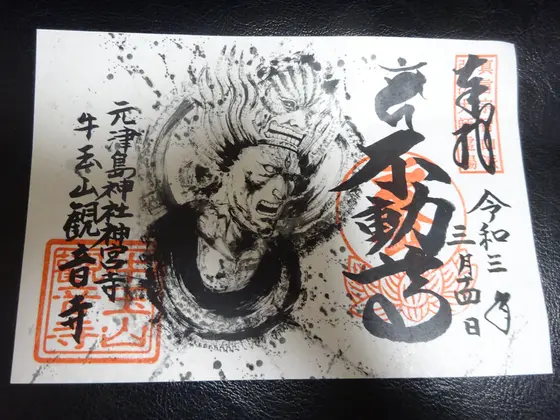 奉拝
令和三年
三月十四日
不動尊
元津島神社神宮寺
牛玉山観音寺